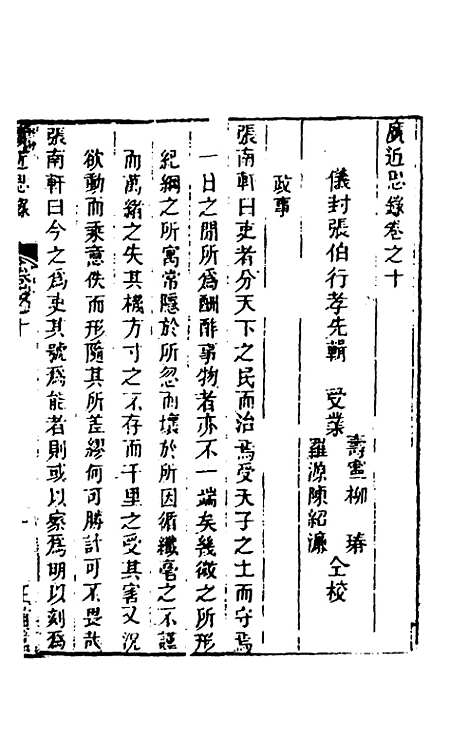 廣近思錄卷之十
儀封張伯行孝先輯　受業
壽寧柳　瑃
羅源陳紹濂
仝校
政事
張南軒曰吏者分天下之民而治焉受天子之土而守焉
一日之間所爲酬酢事物者亦不一端矣幾微之所形
紀綱之所寓常隱於所忽而壞於所因循纖毫之不謹
而萬緒之失其機方寸之不存而千里之受其害又況
欲動而乘意佚而形隨其所差繆何可勝計可不畏哉
張南軒曰今之爲吏其號爲能者則或以察爲明以刻爲
近思錄
卷十
一